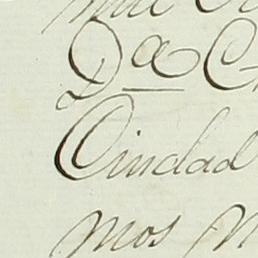 mil
Dª C
Ciudad
mos